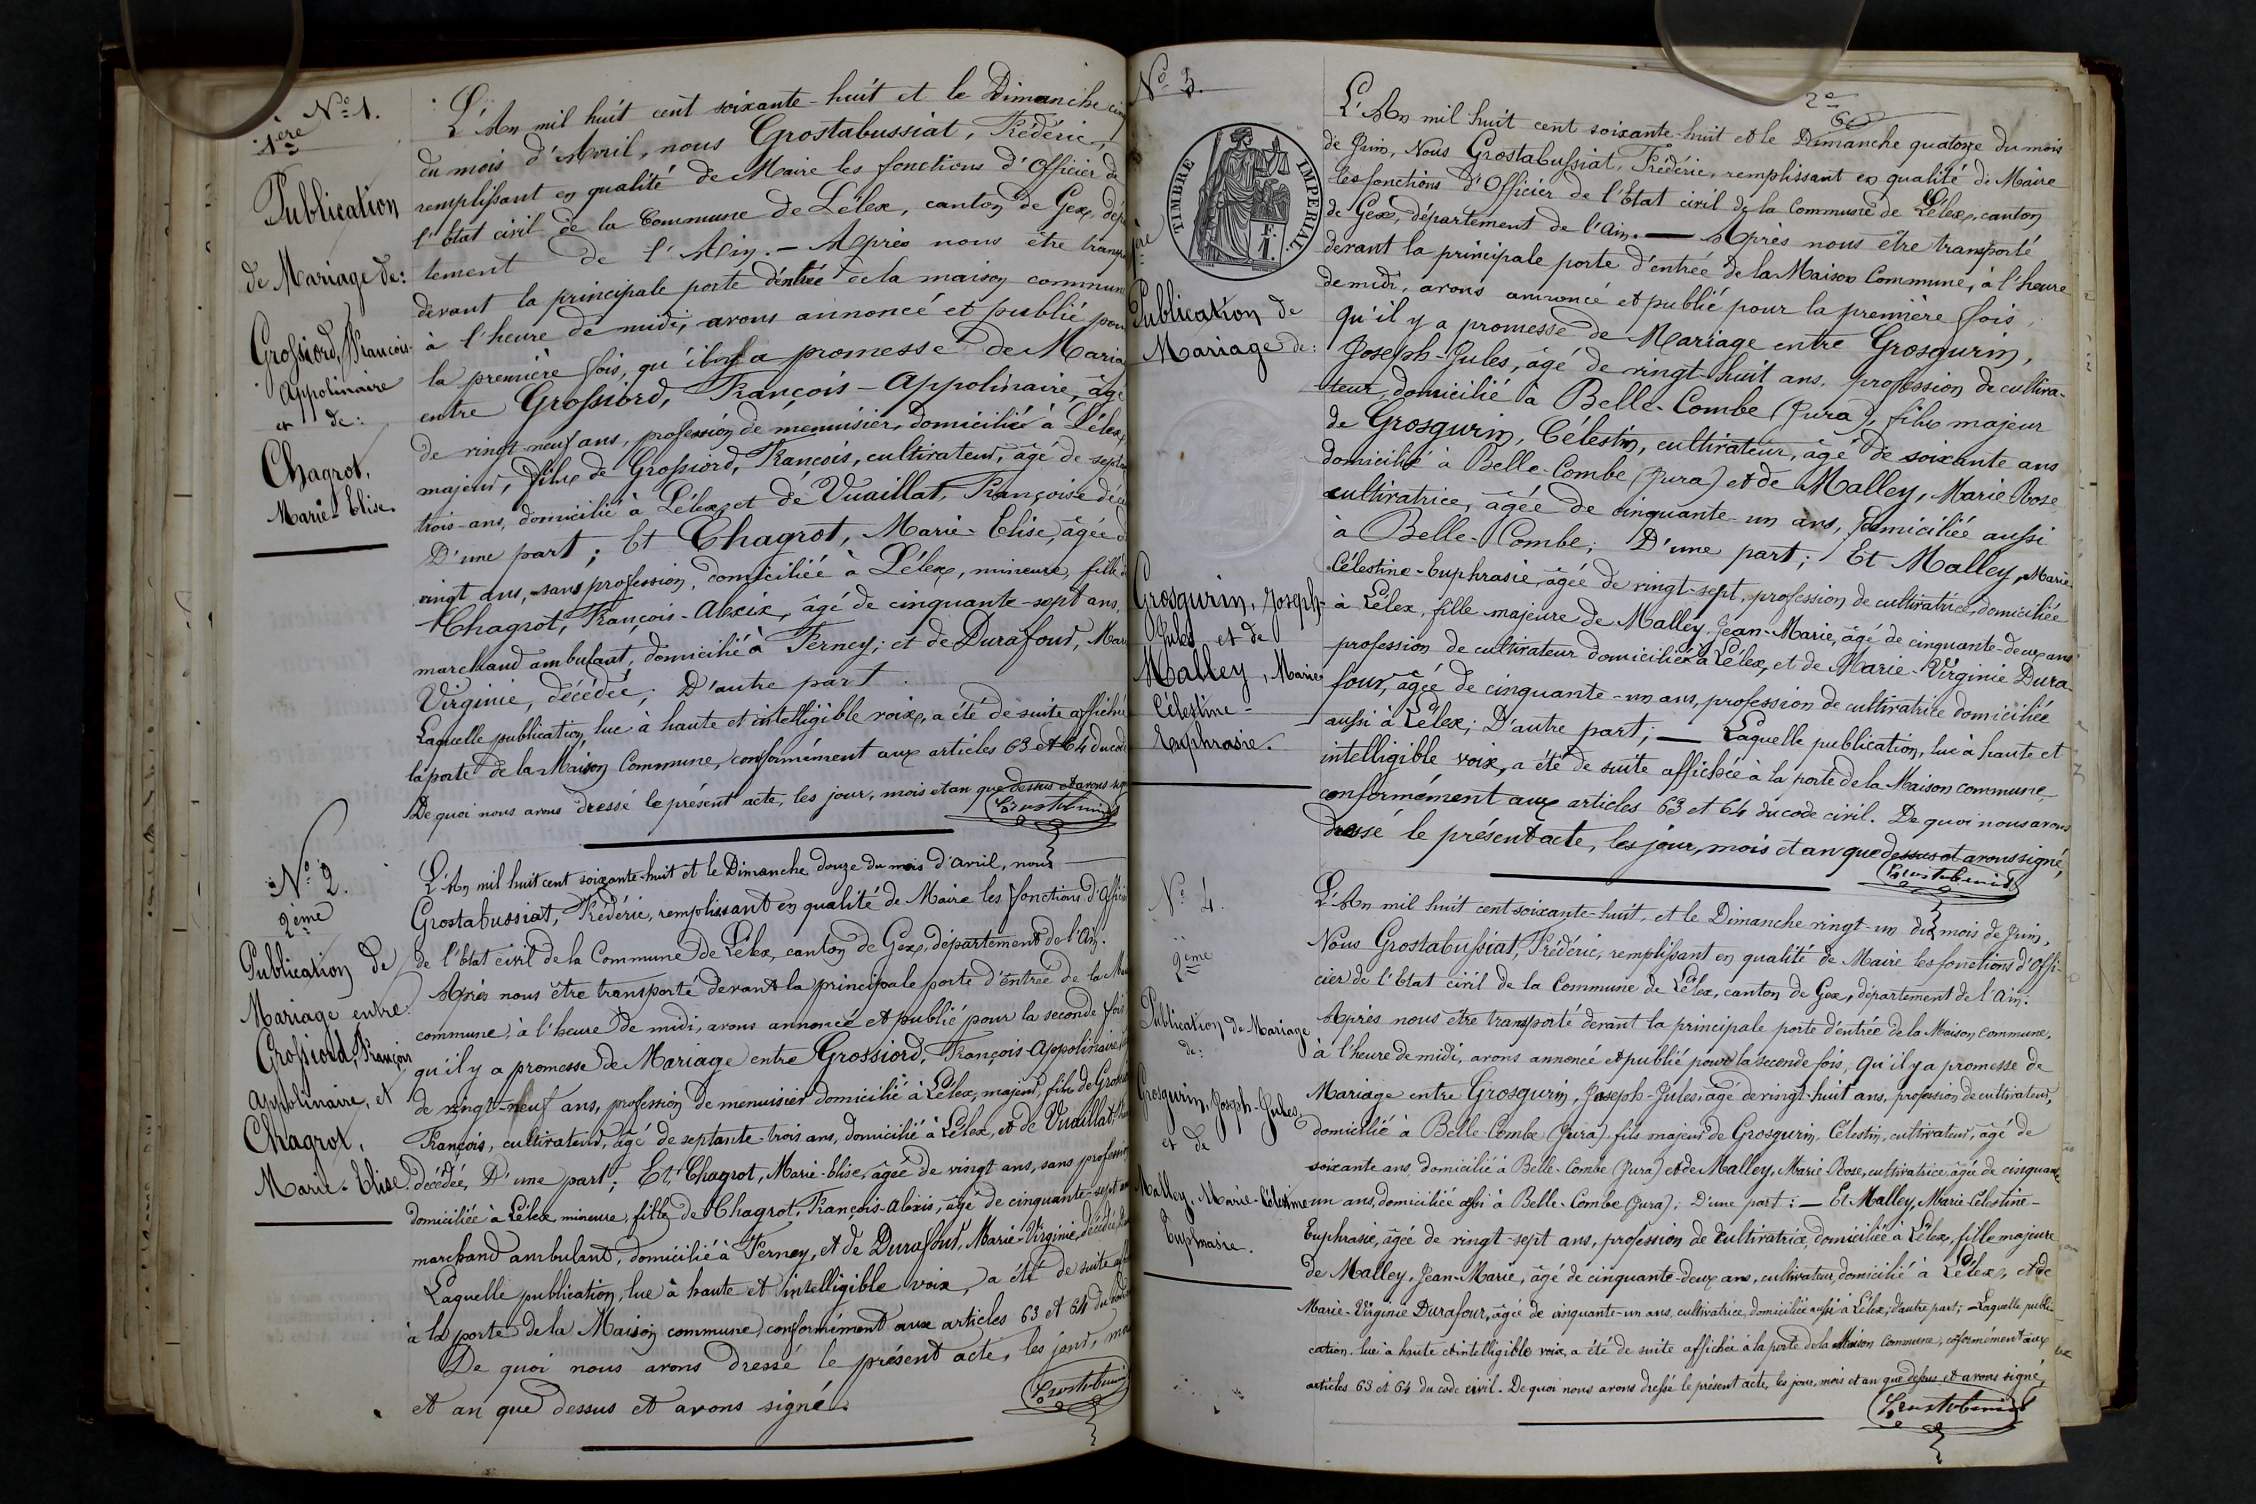 N° 1.
1ère
Publication
de Mariage de:
Grossiord, François
Appolinaire
et de:
Chagrot,
Marie-Elise.
L'An mil huit cent soixante-huit et le Dimanche cinq
du mois d'Avril, nous Grostabussiat, Frédéric,
remplissant en qualité de Maire les fonctions d'Officier de
l'Etat civil de la Commune de Lélex, canton de Gex, dépar
tement de l'Ain. — Après nous être transpo
devant la principale porte d'entrée de la maison commune
à l'heure de midi, avons annoncé et publié pour
la première fois, qu'il y a promesse de Maria
entre Grossiord, François-Appolinaire, âgé
de vingt-neuf ans, profession de menuisier, domicilié à Lélex,
majeur, fils de Grossiord, François, cultivateur, âgé de septante
trois-ans, domicilié à Lélex et de Vuaillat, Françoise décé
D'une part; Et Chagrot, Marie-Elise, âgée d
vingt ans, sans profession, domiciliée à Lélex, mineure, fille d
Chagrot, François-Alexix, âgé de cinquante-sept ans,
marchand ambulant, domicilié à Ferney; et de Durafour, Mari
Virginie, décédée; D'autre part.
Laquelle publication, lue à haute et intelligible voix, a été de suite affichée
la porte de la Maison Commune, conformément aux articles 63 et 64 du code
De quoi nous avons dressé le présent acte, les jour, mois et an que dessus et avons sig
N° 2.
2ème
Publication de
Mariage entre
Grossiord, François
Appolinaire, et
Chagrot,
Marie-Elise.
L'An mil huit cent soixante-huit et le Dimanche douze du mois d'Avril, nous
Grostabussiat, Frédéric, remplissant en qualité de Maire les fonctions d'Offici
de l'Etat civil de la Commune de Lélex, canton de Gex, département de l'Ain.
Après nous être transporté devant la principale porte d'entrée de la Mai
commune, à l'heure de midi, avons annoncé et publié pour la seconde fois
qu'il y a promesse de Mariage entre Grossiord, François-Appolinaire,
de vingt-neuf ans, profession de menuisier domicilié à Lélex, majeur, fils de Grossi
François, cultivateur, âgé de septante-trois ans, domicilié à Lélex, et de Vuaillat,
décédée, D'une part; Et Chagrot, Marie-Elise, âgée de vingt ans, sans profession,
domiciliée à Lélex, mineure, fille de Chagrot, François-Alexis, âgé de cinquante-sept ans
marchand ambulant, domicilié à Ferney, et de Durafour, Marie-Virginie, décédée,
Laquelle publication, lue à haute et intelligible voix, a été de suite aff
à la porte de la Maison commune, conformément aux articles 63 et 64 du code
De quoi nous avons dressé le présent acte, les jour, moi
et an que dessus et avons signé.
N° 3.
2e
60
TIMBRE IMPERIAL
1ère
Publication de
Mariage de:
Grosgurin, Joseph-
Jules, et de
Malley, Marie
Célestine-
Euphrasie.
L'An mil huit cent soixante-huit et le Dimanche quatorze du mois
de Juin, Nous Grostabussiat, Frédéric, remplissant en qualité de Maire
les fonctions d'Officier de l'Etat civil de la Commune de Lélex, canton
de Gex, département de l'Ain. — Après nous être transporté
devant la principale porte d'entrée de la Maison Commune, à l'heure
de midi, avons annoncé et publié pour la première fois,
qu'il y a promesse de Mariage entre Grosgurin,
Joseph-Jules, âgé de vingt-huit ans, profession de cultiva-
teur, domicilié à Belle-Combe (Jura), fils majeur
de Grosgurin, Célestin, cultivateur, âgé de soixante ans
domicilié à Belle-Combe (Jura) et de Malley, Marie Rose
cultivatrice, âgée de cinquante-un ans, domiciliée aussi
à Belle-Combe; D'une part; Et Malley, Marie
Célestine-Euphrasie, âgée de vingt-sept, profession de cultivatrice, domiciliée
à Lélex, fille majeure de Malley, Jean-Marie, âgé de cinquante-deux ans
profession de cultivateur domicilié à Lélex, et de Marie-Virginie Dura-
four, âgée de cinquante-un ans, profession de cultivatrice domiciliée
aussi à Lélex; D'autre part; — Laquelle publication, lue à haute et
intelligible voix, a été de suite affichée à la porte de la Maison commune,
conformément aux articles 63 et 64 du code civil. De quoi nous avons
dressé le présent acte, les jour, mois et an que dessus et avons signé,
N° 4.
2ème
Publication de Mariage
de:
Grosgurin, Joseph-Jules,
et de
Malley, Marie-Célestine
Euphrasie.
L'An mil huit cent soixante-huit, et le Dimanche vingt-un du mois de Juin,
Nous Grostabussiat, Frédéric, remplissant en qualité de Maire les fonctions d'Offi-
cier de l'Etat civil de la Commune de Lélex, canton de Gex, département de l'Ain.
Après nous être transporté devant la principale porte d'entrée de la Maison commune,
à l'heure de midi, avons annoncé et publié pour la seconde fois, qu'il y a promesse de
Mariage entre Grosgurin, Joseph-Jules, âgé de vingt-huit ans, profession de cultivateur,
domicilié à Belle-Combe (Jura), fils majeur de Grosgurin, Célestin, cultivateur, âgé de
soixante ans, domicilié à Belle-Combe (Jura) et de Malley, Marie Rose, cultivatrice, âgée de cinquante
un ans, domiciliée aussi à Belle-Combe (Jura); D'une part: — Et Malley, Marie-Célestine-
Euphrasie, âgée de vingt-sept ans, profession de Cultivatrice, domiciliée à Lélex, fille majeure
de Malley, Jean-Marie, âgé de cinquante-deux ans, cultivateur, domicilié à Lélex, et de
Marie-Virginie Durafour, âgée de cinquante-un ans, cultivatrice, domiciliée aussi à Lélex; d'autre part; — Laquelle publi-
cation, lue à haute et intelligible voix, a été de suite affichée à la porte de la Maison Commune, conformément aux
articles 63 et 64 du code civil. De quoi nous avons dressé le présent acte, les jour, mois et an que dessus et avons signé,